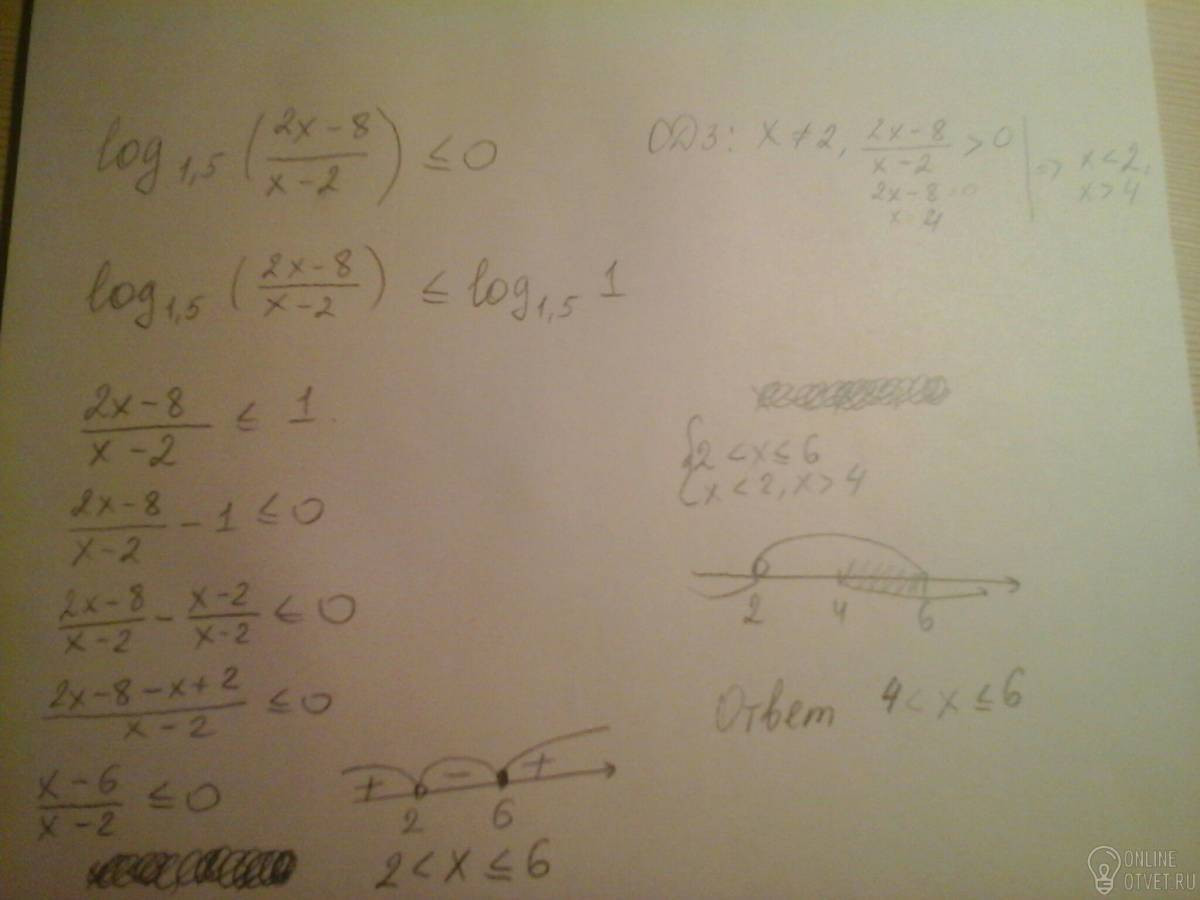 log₁,₅ ((2x-8)/(x-2)) ≤ 0
ОДЗ: x ≠ 2, (2x-8)/(x-2) > 0 | => x < 2,
2x-8=0 x > 4
x 4
log₁,₅ ((2x-8)/(x-2)) ≤ log₁,₅ 1
(2x-8)/(x-2) ≤ 1.
(2x-8)/(x-2) - 1 ≤ 0
(2x-8)/(x-2) - (x-2)/(x-2) ≤ 0
(2x-8-x+2)/(x-2) ≤ 0
(x-6)/(x-2) ≤ 0
+ - +
2 6
2 < x ≤ 6
{2 < x ≤ 6
x < 2, x > 4
2 4 6
Ответ 4 < x ≤ 6
ONLINE
OTVET.RU